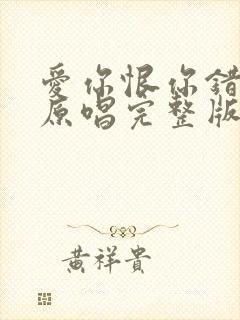 愛你恨你錯
原唱完整版
黃祥貴